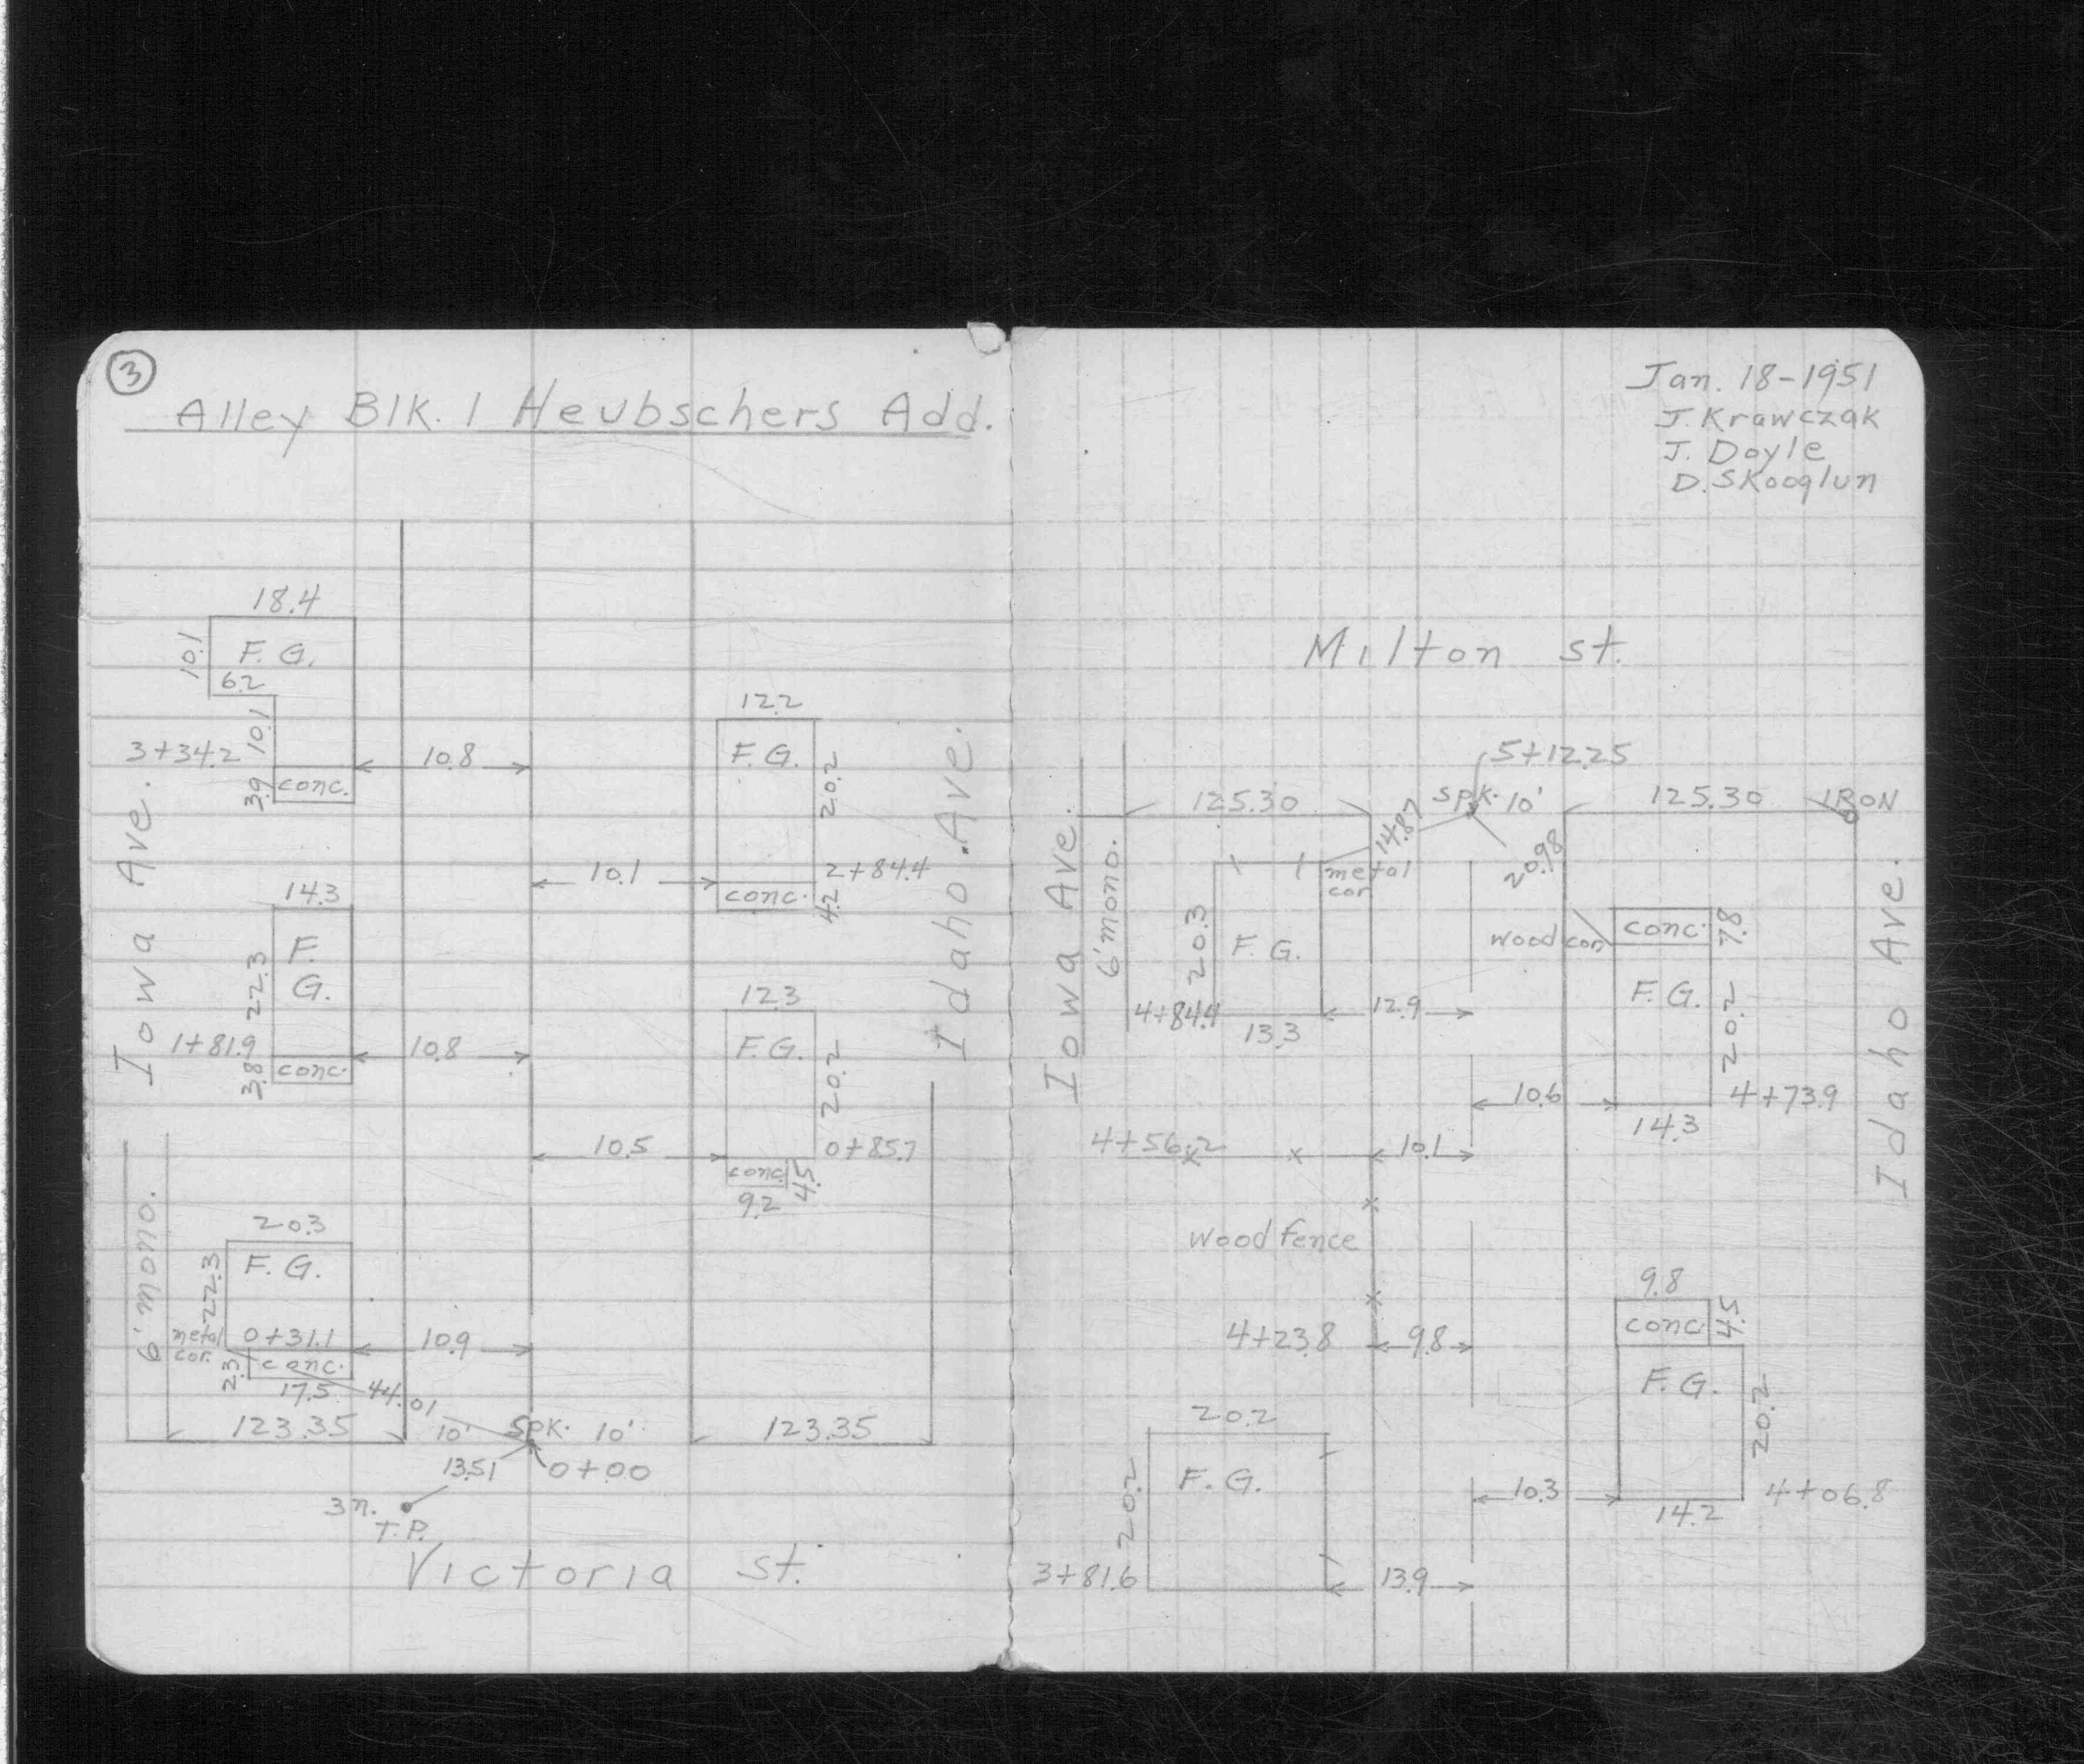 3
Alley Blk. 1 Heubschers Add.
18.4
F. G.
10.1
6.2
10.1
3+34.2
10.8
3.9
conc.
12.2
F. G.
20.2
10.1
2+84.4
conc.
4.2
Iowa Ave.
Idaho Ave.
14.3
F.
G.
22.3
1+81.9
10.8
3.8
conc.
12.3
F. G.
20.2
10.5
0+85.7
conc.
4.5
9.2
6' mono.
20.3
F. G.
22.3
metal
cor.
0+31.1
10.9
2.3
conc.
17.5
44.01
123.35
10'
SPK.
10'
123.35
13.51
0+00
3 n.
T.P.
Victoria st.
Jan. 18-1951
J. Krawczak
J. Doyle
D. Skooglun
Milton st.
5+12.25
125.30
spk. 10'
125.30
IRON
14.87
20.98
Iowa Ave.
6' mono.
metal
cor
20.3
F. G.
4+84.4
13.3
12.9
wood cor.
conc.
7.8
F. G.
20.2
10.6
4+73.9
14.3
Idaho Ave.
4+56.2
10.1
wood fence
9.8
conc.
4.5
4+23.8
9.8
F. G.
20.2
10.3
4+06.8
14.2
20.2
F. G.
20.2
3+81.6
13.9